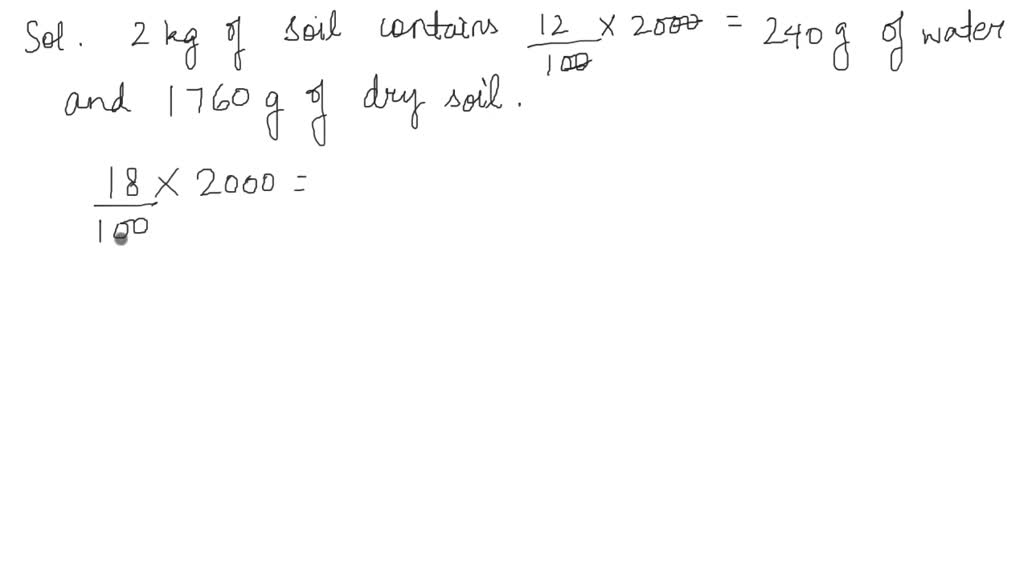 Sol. 2 kg of soil contains 12/100 × 2000 = 240 g of water
and 1760 g of dry soil.
18/100 × 2000 =